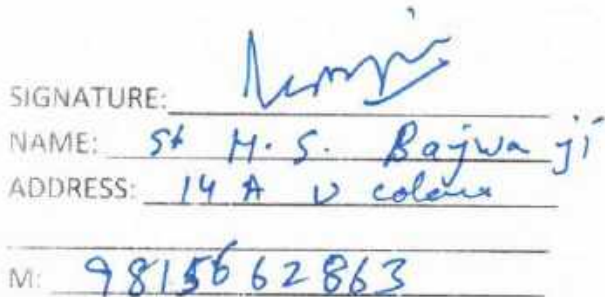 SIGNATURE:
NAME: St M. S. Bajwa ji
ADDRESS: 14 A
M: 9815662863